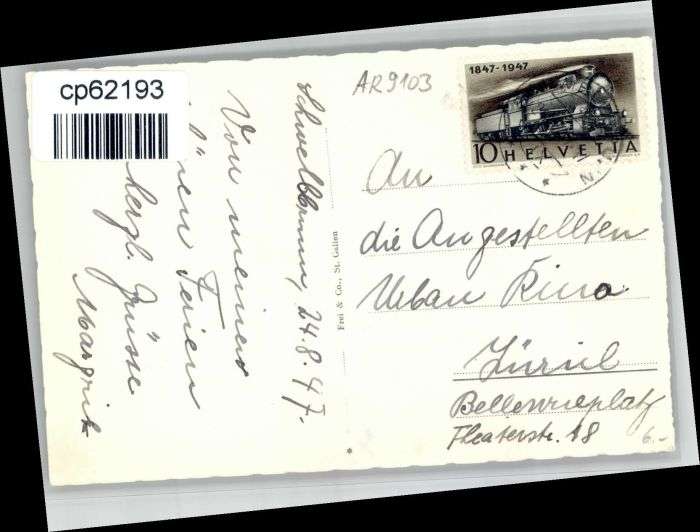 cp62193
AR9103
1847-1947
10 HELVETIA
Schwellbrunn, 24.8.47.
Von meinen
Ferien
herzl. Grüsse
Margrit
Frei & Co., St. Gallen
An
die Angestellten
Urban Kino
Zürich
Bellevueplatz
Theaterstr. 18
6.-